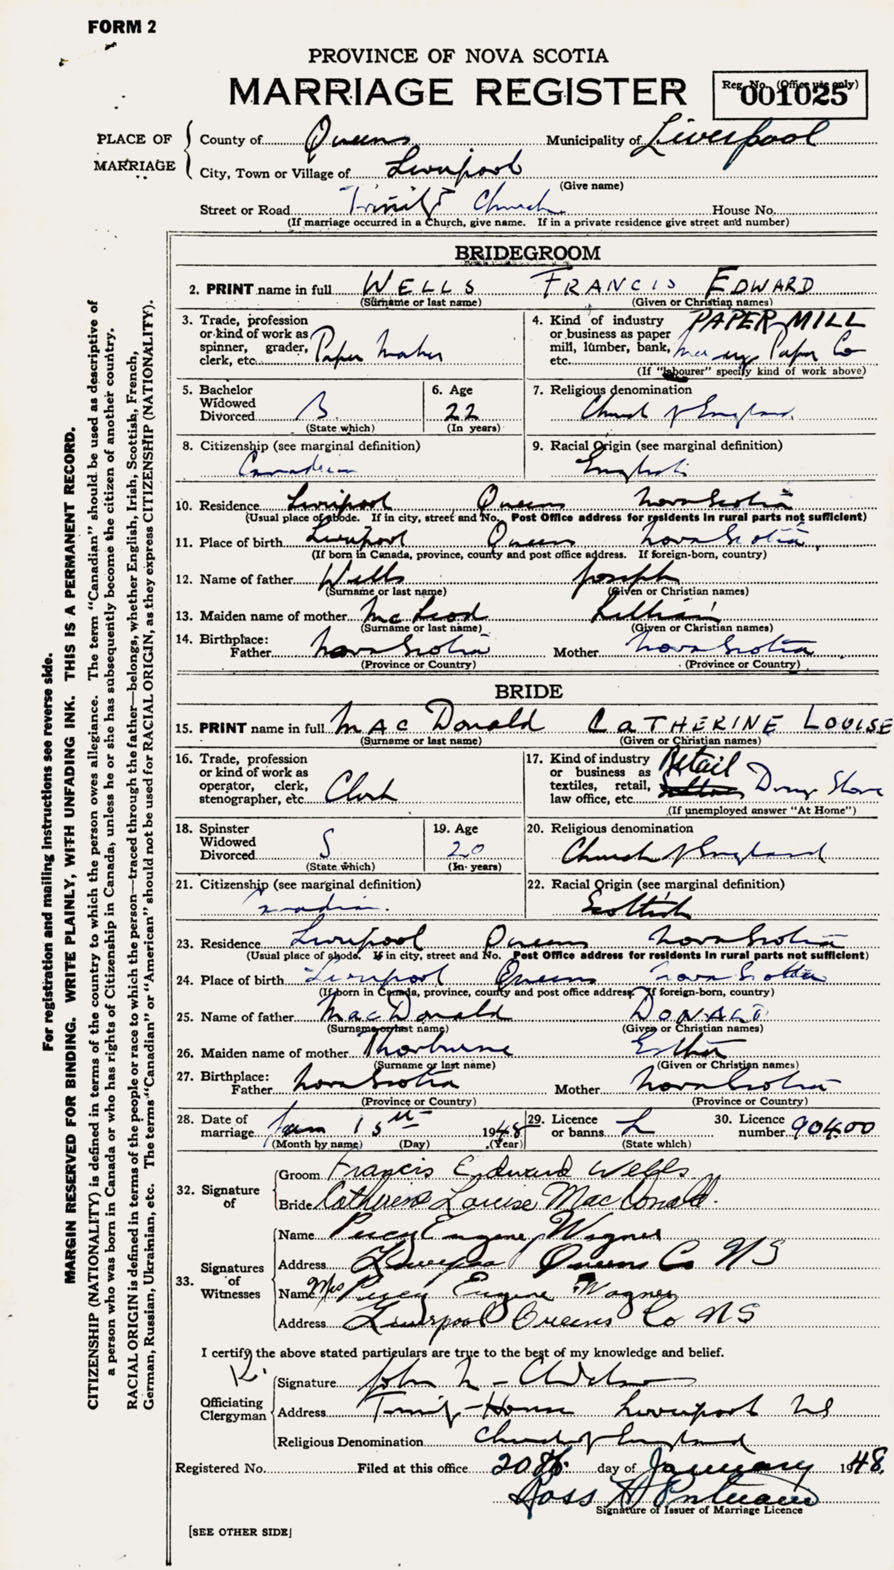 FORM 2
PROVINCE OF NOVA SCOTIA
MARRIAGE REGISTER
Reg. No. (Office use only)
001025
PLACE OF MARRIAGE
County of Queens Municipality of Liverpool
City, Town or Village of Liverpool
(Give name)
Street or Road Trinity Church House No.
(If marriage occurred in a Church, give name. If in a private residence give street and number)
BRIDEGROOM
2. PRINT name in full WELLS FRANCIS EDWARD
(Surname or last name) (Given or Christian names)
3. Trade, profession or kind of work as spinner, grader, clerk, etc. Paper Maker
4. Kind of industry or business as paper mill, lumber, bank, etc. PAPER MILL Mersey Paper Co
(If "labourer" specify kind of work above)
5. Bachelor Widowed Divorced B.
(State which)
6. Age 22
(In years)
7. Religious denomination
Church of England
8. Citizenship (see marginal definition)
Canadian
9. Racial Origin (see marginal definition)
English
10. Residence Liverpool Queens Nova Scotia
(Usual place of abode. If in city, street and No. Post Office address for residents in rural parts not sufficient)
11. Place of birth Liverpool Queens Nova Scotia
(If born in Canada, province, county and post office address. If foreign-born, country)
12. Name of father Wells Joseph
(Surname or last name) (Given or Christian names)
13. Maiden name of mother McLeod Lillian
(Surname or last name) (Given or Christian names)
14. Birthplace:
Father Nova Scotia Mother Nova Scotia
(Province or Country) (Province or Country)
BRIDE
15. PRINT name in full MAC Donald CATHERINE LOUISE
(Surname or last name) (Given or Christian names)
16. Trade, profession or kind of work as operator, clerk, stenographer, etc. Clerk
17. Kind of industry or business as textiles, retail, law office, etc. Retail Drug Store
(If unemployed answer "At Home")
18. Spinster Widowed Divorced S
(State which)
19. Age 20
(In years)
20. Religious denomination
Church of England
21. Citizenship (see marginal definition)
Canadian.
22. Racial Origin (see marginal definition)
Scottish
23. Residence Liverpool Queens Nova Scotia
(Usual place of abode. If in city, street and No. Post Office address for residents in rural parts not sufficient)
24. Place of birth Liverpool Queens Nova Scotia
(If born in Canada, province, county and post office address. If foreign-born, country)
25. Name of father MacDonald DONALD
(Surname or last name) (Given or Christian names)
26. Maiden name of mother Thorburne Esther
(Surname or last name) (Given or Christian names)
27. Birthplace:
Father Nova Scotia Mother Nova Scotia
(Province or Country) (Province or Country)
28. Date of marriage Jan 15th 1948
(Month by name) (Day) (Year)
29. Licence or banns L
(State which)
30. Licence number 90400
32. Signature of
Groom Francis Edward Wells
Bride Catherine Louise MacDonald.
33. Signatures of Witnesses
Name Percy Eugene Wagner
Address Liverpool Queens Co NS
Name Mrs Percy Eugene Wagner
Address Liverpool Queens Co NS
I certify the above stated particulars are true to the best of my knowledge and belief.
Officiating Clergyman
Signature John
Address Trinity House Liverpool NS
Religious Denomination Church of England
Registered No. Filed at this office 20th day of January 1948.
Ross H
Signature of Issuer of Marriage Licence
[SEE OTHER SIDE]
For registration and mailing instructions see reverse side.
MARGIN RESERVED FOR BINDING. WRITE PLAINLY, WITH UNFADING INK. THIS IS A PERMANENT RECORD.
CITIZENSHIP (NATIONALITY) is defined in terms of the country to which the person owes allegiance. The term "Canadian" should be used as descriptive of
a person who was born in Canada or who has rights of Citizenship in Canada, unless he or she has subsequently become the citizen of another country.
RACIAL ORIGIN is defined in terms of the people or race to which the person—traced through the father—belongs, whether English, Irish, Scottish, French,
German, Russian, Ukrainian, etc. The terms "Canadian" or "American" should not be used for RACIAL ORIGIN, as they express CITIZENSHIP (NATIONALITY).